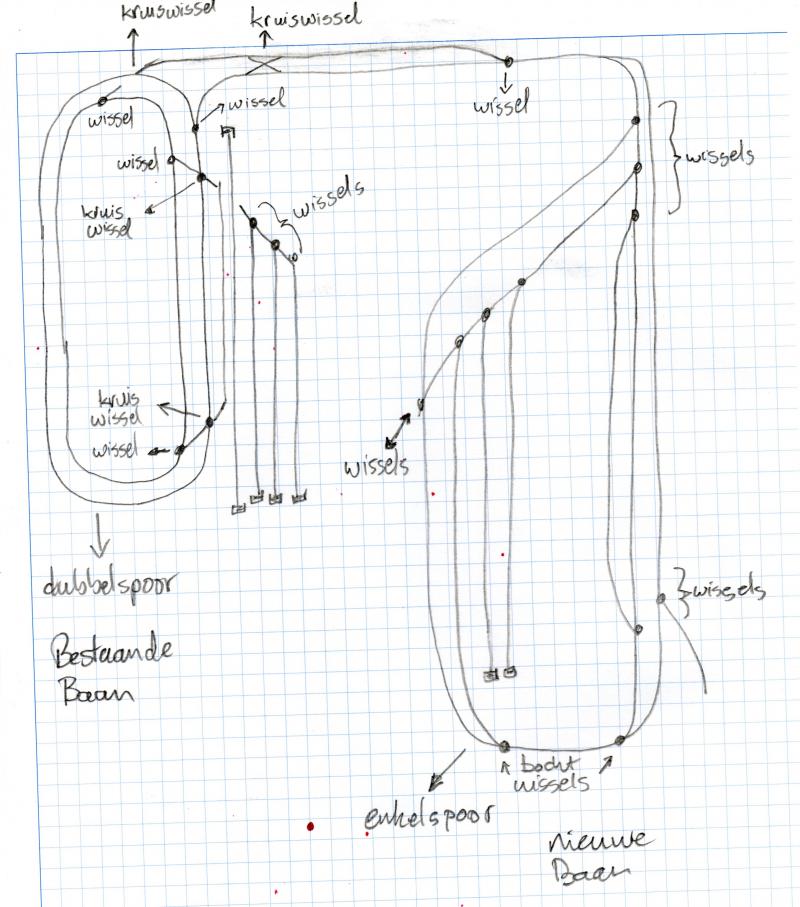 kruiswissel
kruiswissel
wissel
wissel
wissel
wissel
wissels
kruis
wissel
wissels
kruis
wissel
wissel
wissels
dubbelspoor
wissels
Bestaande
Baan
bocht
wissels
enkelspoor
nieuwe
Baan